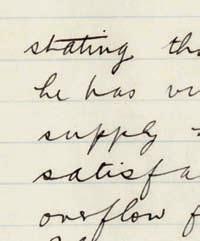 stating
he has
supply
satisfa
overflow f